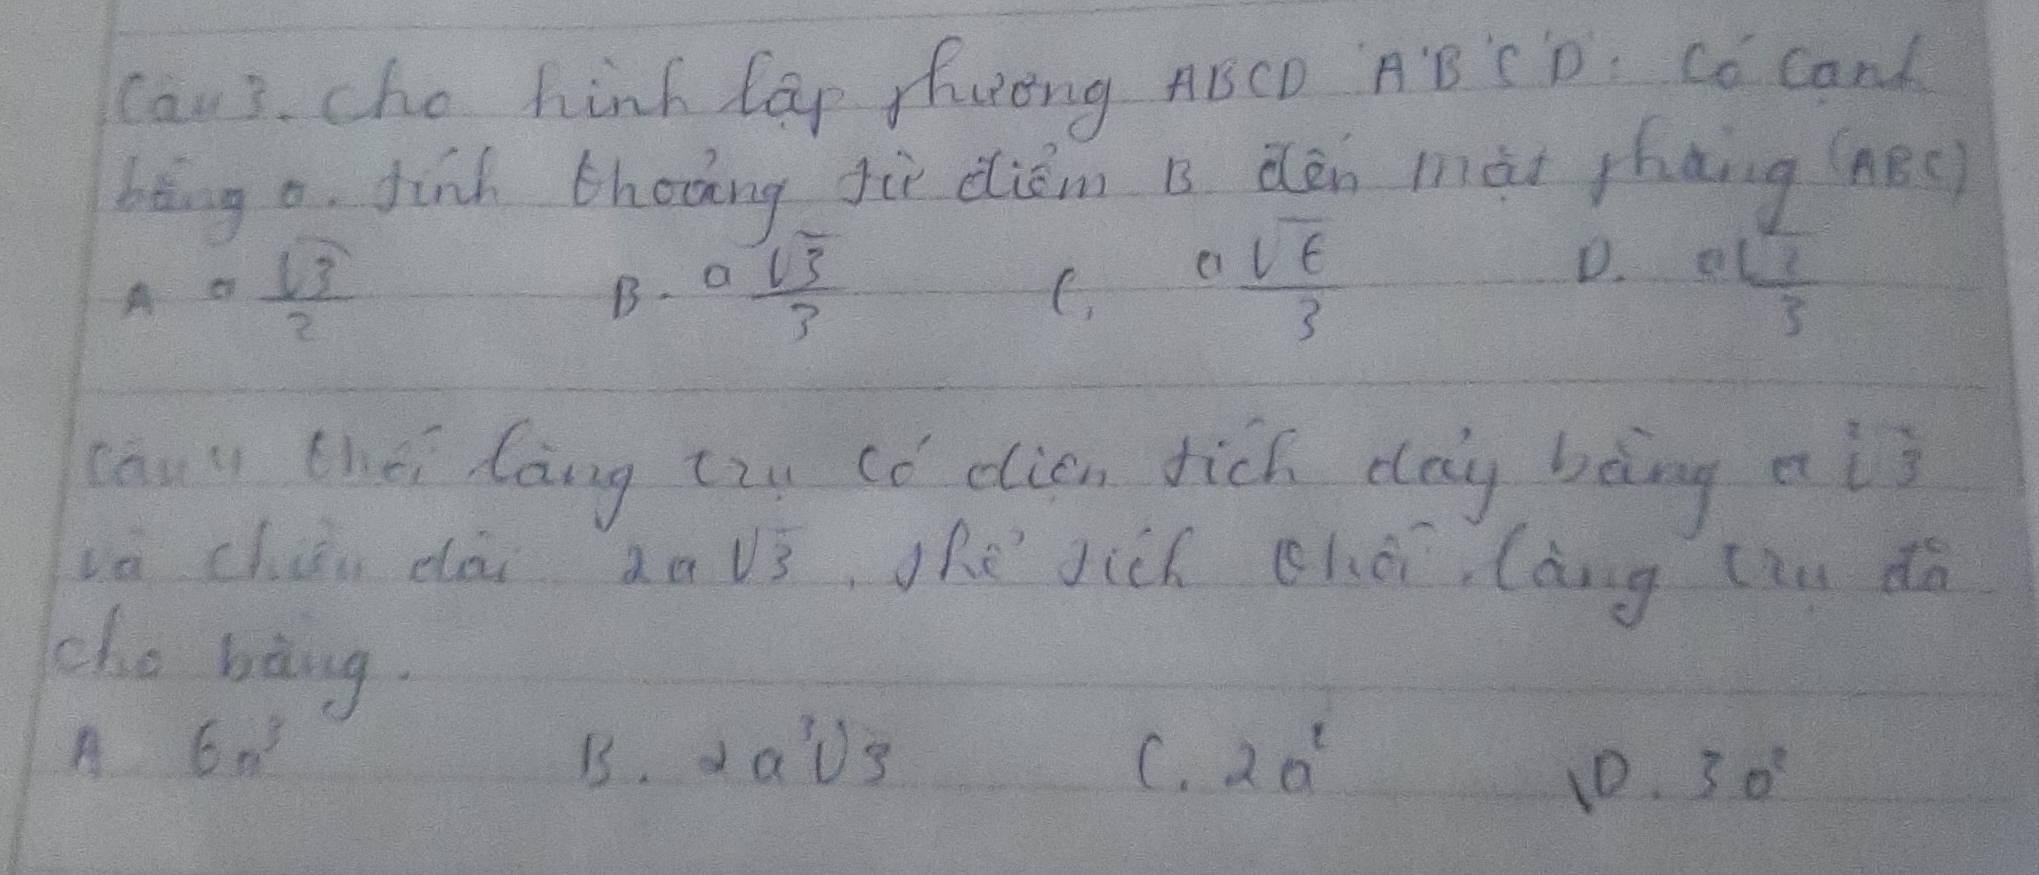 Câu 3. Cho hình lập phương ABCD A'B'C'D'. Có cạnh
bằng a. tính khoảng từ điểm B đến mặt phẳng (ABC)
A a √3/2 B. a √3/3 C. a √6/3 D. a √2/3
Câu 4 khối lăng trụ có diện tích đáy bằng a²√3
và chiều dài 2a√3. thể tích khối lăng trụ đã
cho bằng.
A 6a³ B. 2a³√3 C. 2a² D. 3a²